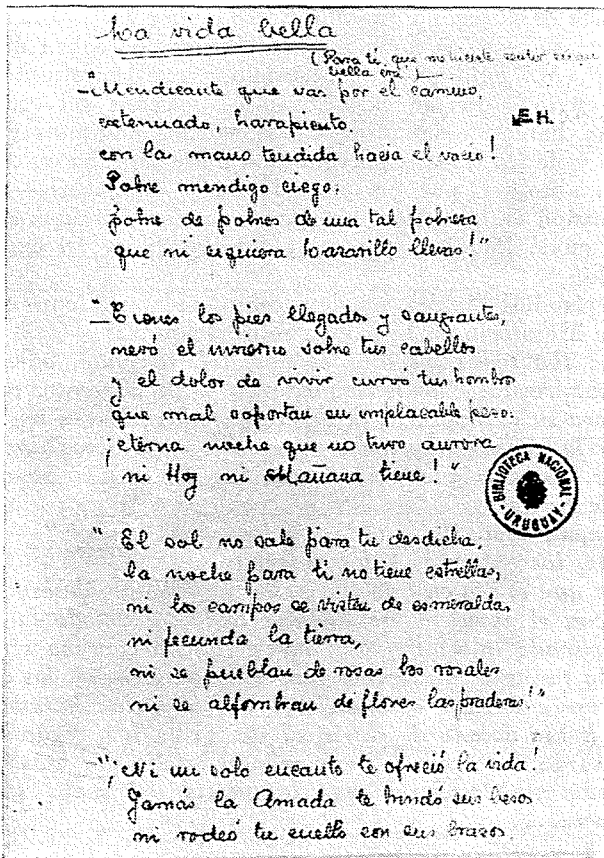 La vida bella
(Para ti, que me hiciste sentir
bella era)
E.H.
—"¡Mendicante que vas por el camino,
extenuado, harapiento.
con la mano tendida hacia el vacio!
Pobre mendigo ciego:
pobre de pobres de una tal pobreza
que ni siquiera Lazarillo llevas!"
—"Tienes los pies llagados y sangrantes,
nevó el invierno sobre tus cabellos
y el dolor de vivir curvó tus hombros
que mal soportan su implacable peso:
¡eterna noche que no tuvo aurora
ni Hoy ni Mañana tiene!"
BIBLIOTECA NACIONAL - URUGUAY -
"El sol no sale para tu desdicha,
la noche para ti no tiene estrellas,
ni los campos se visten de esmeralda,
ni fecunda la tierra,
ni se pueblan de rosas los rosales
ni se alfombran de flores las praderas!"
"¡Ni un solo encanto te ofreció la vida!
Jamás la Amada te brindó sus besos
ni rodeó tu cuello con sus brazos